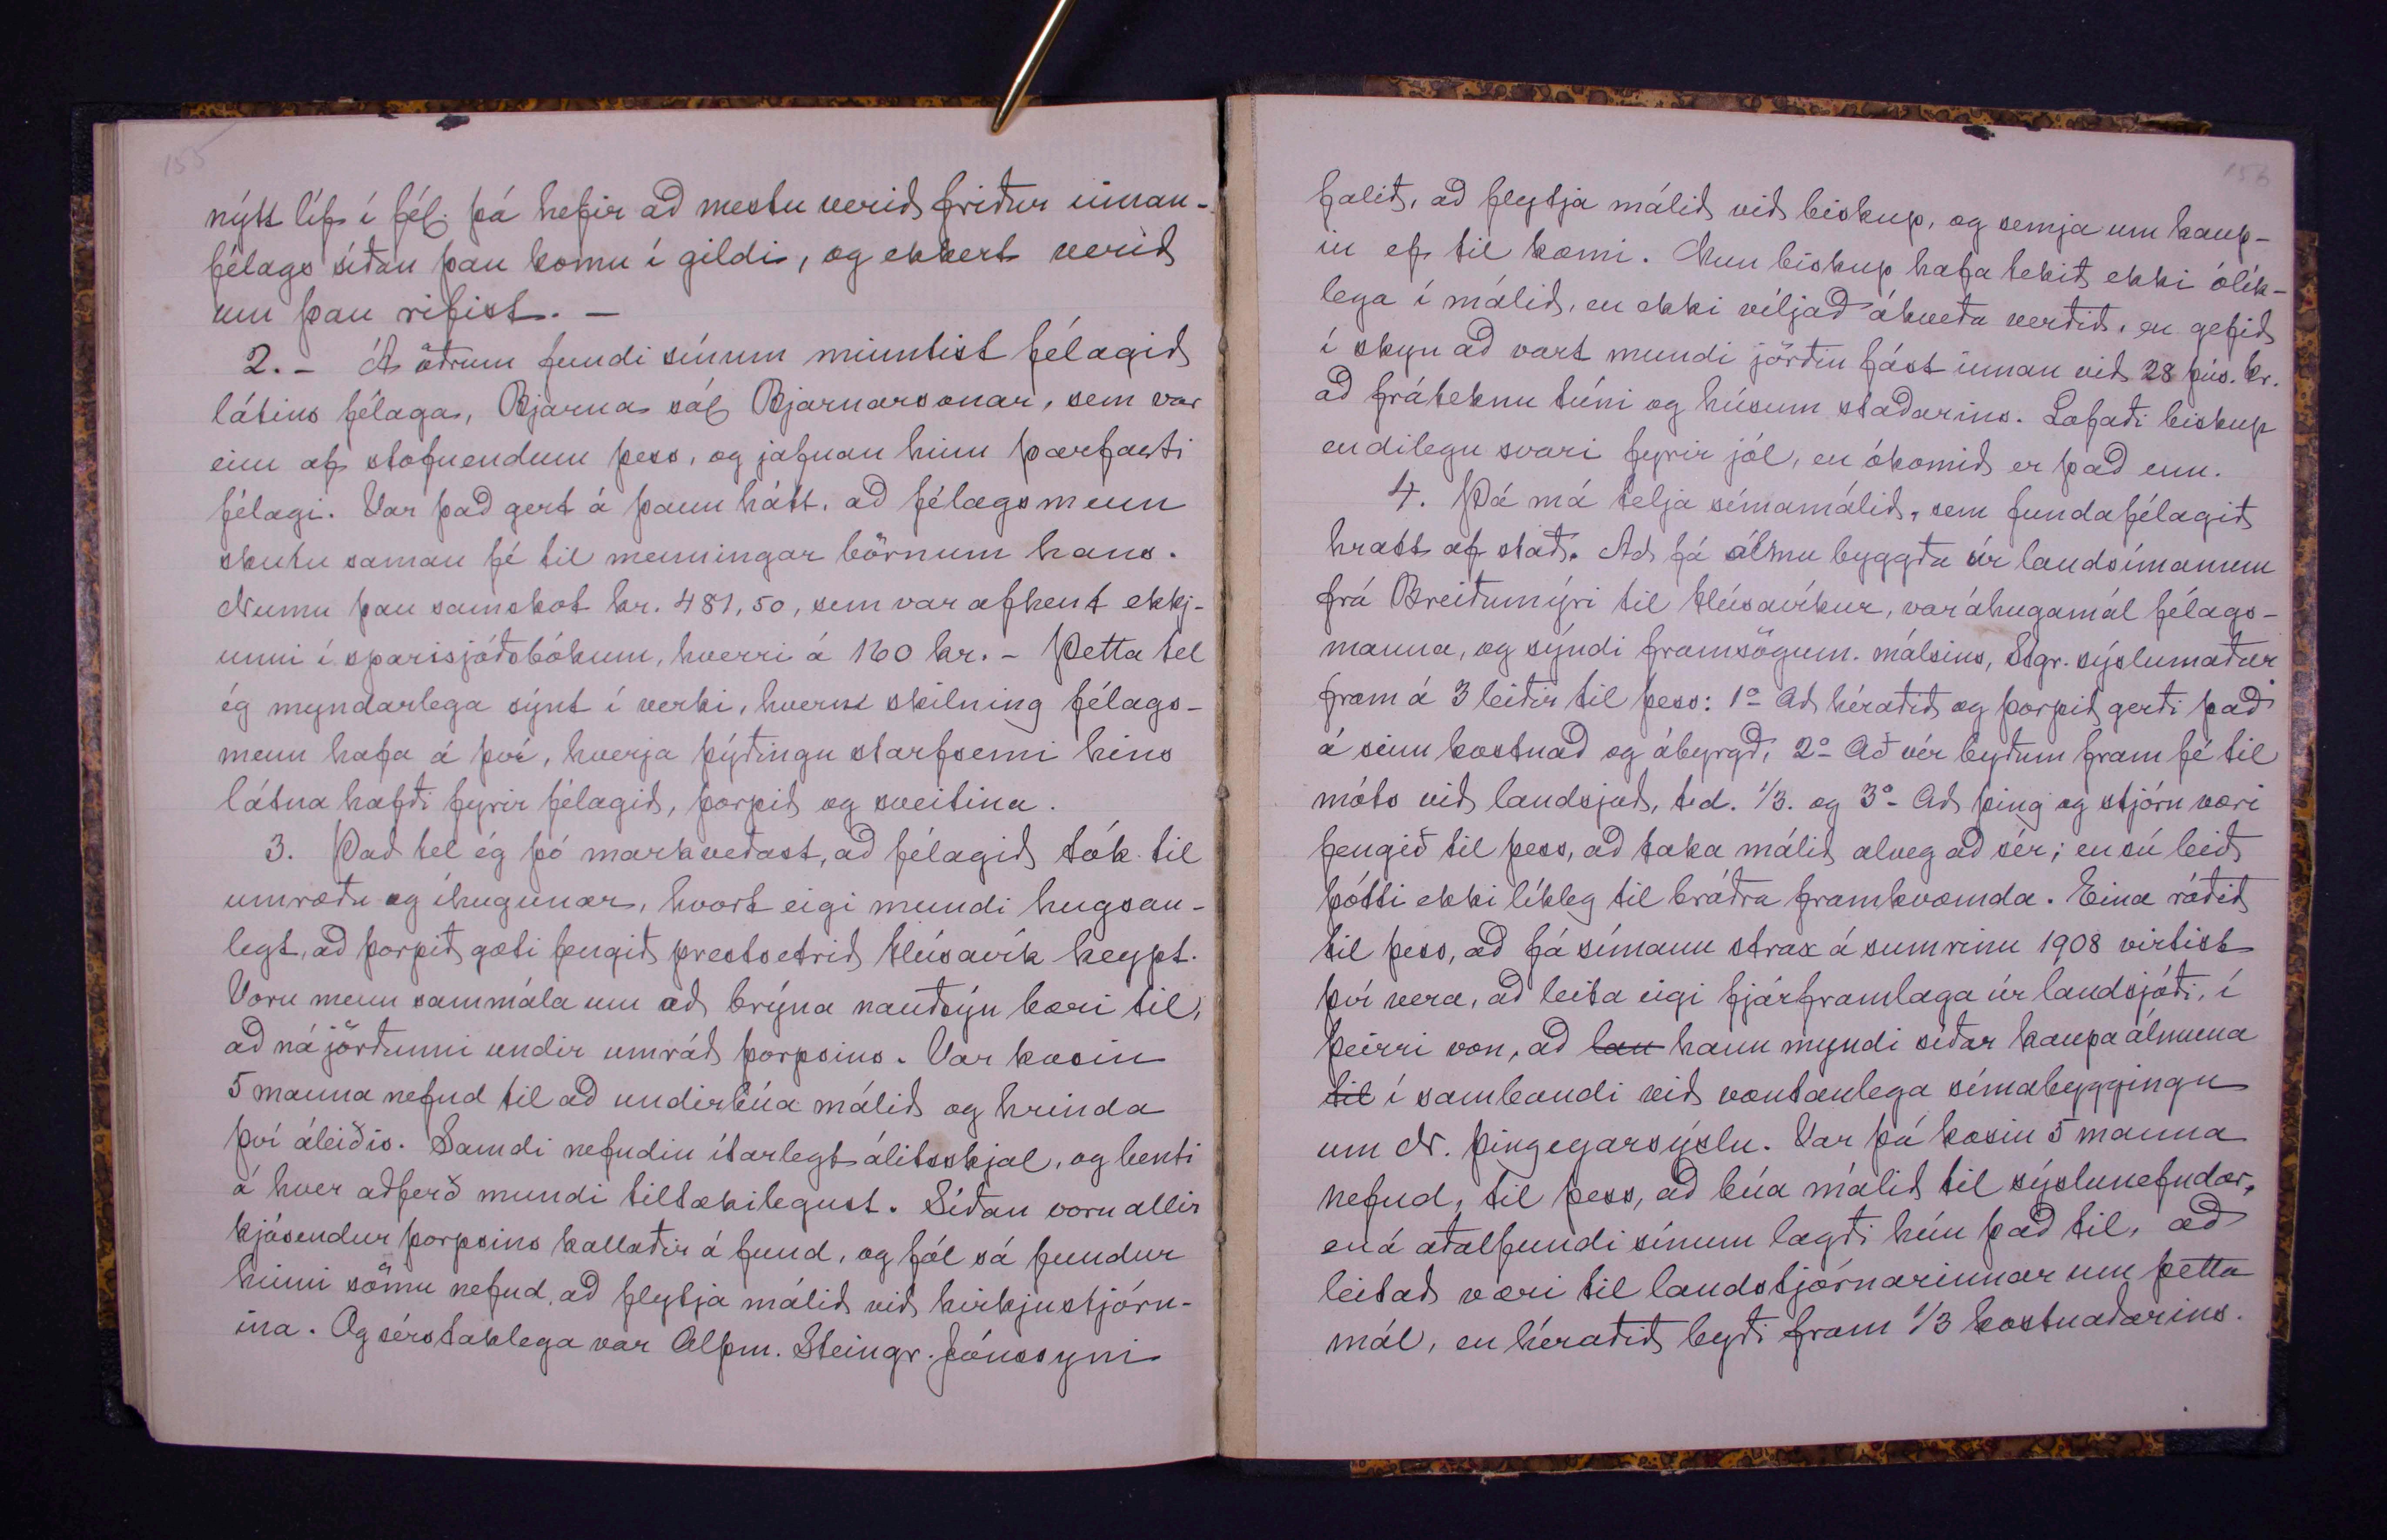 155
nýtt líf í fél. þá hefir að mestu verið friður innan-
félags síðan þau komu í gildi, og ekkert verið
um þau rifist. —
2. - Á öðrum fundi sínum mintist félagið
látins félaga, Bjarna sál Bjarnarsonar, sem var
einn af stofnendum þess, og jafnan hinn þarfasti
félagi. Var það gert á þann hátt, að félagsmenn
skutu saman fé til menningar börnum hans.
Numu þau samskot kr. 481,50, sem var afhent ekkj-
unni í sparisjóðsbókum, hverri á 160 kr. - Þetta tel
ég myndarlega sýnt í verki, hvern skilning félags-
menn hafa á því, hverja þýðingu starfsemi hins
látna hafði fyrir félagið, þorpið og sveitina.
3. Það tel ég þó markveðast, að félagið tók til
umræðu og íhugunar, hvort eigi mundi hugsan-
legt, að þorpið gæti fengið prestsetrið Húsavík keypt.
Voru menn sammála um að brýna nauðsýn bæri til,
að ná jörðunni undir umráð þorpsins. Var kosin
5 manna nefnd til að undirbúa málið og hrinda
því áleiðis. Samdi nefndin ítarlegt álitsskjal, og benti
á hver aðferð mundi tiltækilegust. Síðan voru allir
kjósendur þorpsins kallaðir á fund, og fól sá fundur
hinni sömu nefnd, að flytja málið við kirkjustjórn-
ina. Og sérstaklega var Alþm. Steingr. Jónssyni
156
falið, að flytja málið við biskup, og semja um kaup-
in ef til kæmi. Mun biskup hafa tekið ekki ólík-
lega í málið, en ekki viljað ákveða verðið, en gefið
í skyn að vart mundi jörðin fást innan við 28 þús. kr.
að fráteknu túni og húsum staðarins. Lofaði biskup
endilegu svari fyrir jól, en ókomið er það enn.
4. Þá má telja símamálið, sem fundafélagið
hratt af stað. Að fá álmu byggða úr landsímanum
frá Breiðumýri til Húsavíkur, var áhugamál félags-
manna, og sýndi framsögum. málsins, Stgr. sýslumaður
fram á 3 leiðir til þess: 1º Að héraðið og þorpið gerði það
á sinn kostnað og ábyrgð, 2º Að vér byðum fram fé til
móts við landsjóð, t.d. 1/3. og 3º Að þing og stjórn væri
fengið til þess, að taka málið alveg að sér; en sú leið
þótti ekki líkleg til bráðra framkvæmda. Eina ráðið
til þess, að fá símann strax á sumrinu 1908 virtist
því vera, að leita eigi fjárframlaga úr landsjóði, í
þeirri von, að lan hann myndi síðar kaupa álmuna
til í sambandi við væntanlega símabyggingu
um N. Þingeyarsýslu. Var þá kosin 5 manna
nefnd, til þess, að búa málið til sýslunefndar,
en á aðalfundi sínum lagði hún það til, að
leitað væri til landstjórnarinnar um þetta
mál, en héraðið byði fram 1/3 kostnaðarins.